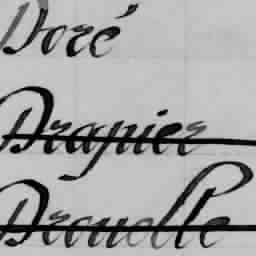 Doré
Drapier
Drouelle